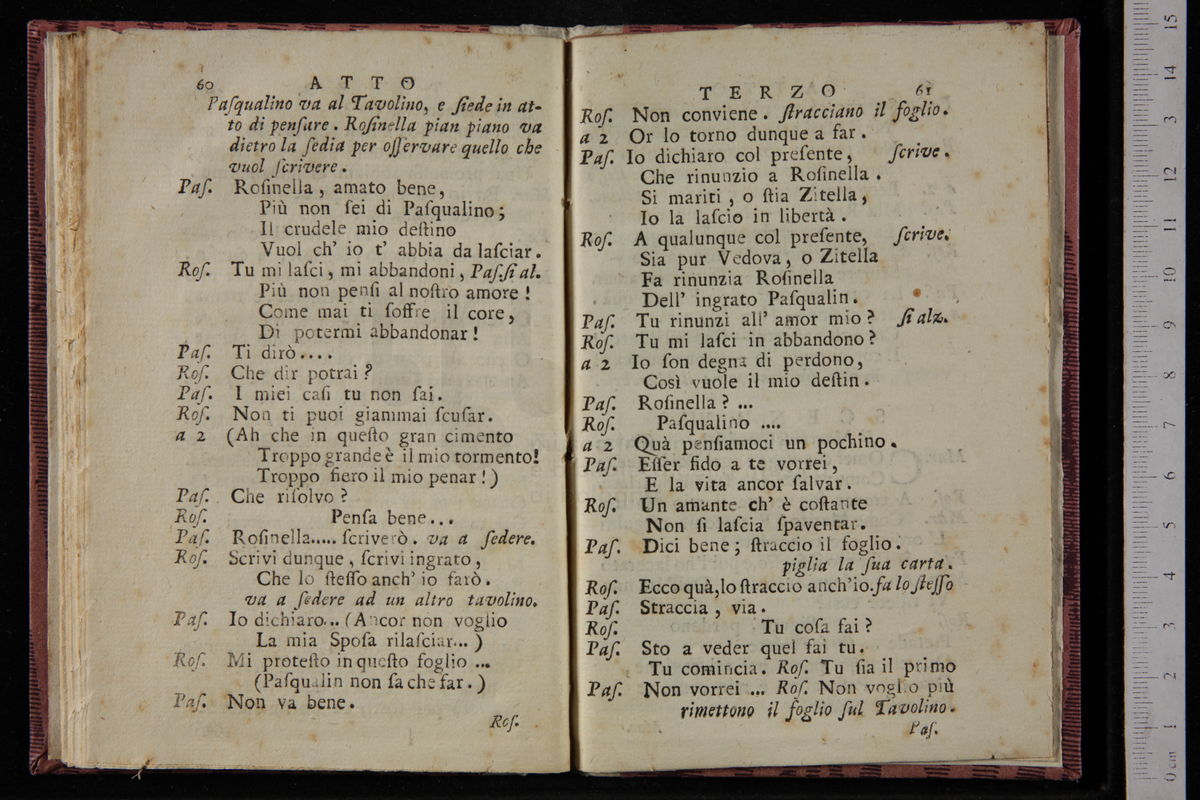 60 ATTO
Paſqualino va al Tavolino, e ſiede in at-
to di penſare. Roſinella pian piano va
dietro la ſedia per oſſervare quello che
vuol ſcrivere.
Paſ. Roſinella, amato bene,
Più non ſei di Paſqualino;
Il crudele mio deſtino
Vuol ch' io t' abbia da laſciar.
Roſ. Tu mi laſci, mi abbandoni, Paſ. ſi al.
Più non penſi al noſtro amore!
Come mai ti ſoffre il core,
Di potermi abbandonar!
Paſ. Ti dirò....
Roſ. Che dir potrai?
Paſ. I miei caſi tu non ſai.
Roſ. Non ti puoi giammai ſcuſar.
a 2 (Ah che in queſto gran cimento
Troppo grande è il mio tormento!
Troppo fiero il mio penar!)
Paſ. Che riſolvo?
Roſ. Penſa bene...
Paſ. Roſinella..... ſcriverò. va a ſedere.
Roſ. Scrivi dunque, ſcrivi ingrato,
Che lo ſteſſo anch' io farò.
va a ſedere ad un altro tavolino.
Paſ. Io dichiaro... (Ancor non voglio
La mia Spoſa rilaſciar...)
Roſ. Mi proteſto in queſto foglio ...
(Paſqualin non ſa che far.)
Paſ. Non va bene.
Roſ.
TERZO 61
Roſ. Non conviene. ſtracciano il foglio.
a 2 Or lo torno dunque a far.
Paſ. Io dichiaro col preſente, ſcrive.
Che rinunzio a Roſinella.
Si mariti, o ſtia Zitella,
Io la laſcio in libertà.
Roſ. A qualunque col preſente, ſcrive.
Sia pur Vedova, o Zitella
Fa rinunzia Roſinella
Dell' ingrato Paſqualin.
Paſ. Tu rinunzi all' amor mio? ſi alz.
Roſ. Tu mi laſci in abbandono?
a 2 Io ſon degna di perdono,
Così vuole il mio deſtin.
Paſ. Roſinella? ...
Roſ. Paſqualino ....
a 2 Quà penſiamoci un pochino.
Paſ. Eſſer fido a te vorrei,
E la vita ancor ſalvar.
Roſ. Un amante ch' è coſtante
Non ſi laſcia ſpaventar.
Paſ. Dici bene; ſtraccio il foglio.
piglia la ſua carta.
Roſ. Ecco quà, lo ſtraccio anch'io. fa lo ſteſſo
Paſ. Straccia, via.
Roſ. Tu coſa fai?
Paſ. Sto a veder quel fai tu.
Tu comincia. Roſ. Tu ſia il primo
Paſ. Non vorrei ... Roſ. Non voglio più
rimettono il foglio ſul Tavolino.
Paſ.
0 cm 1 2 3 4 5 6 7 8 9 10 11 12 13 14 15